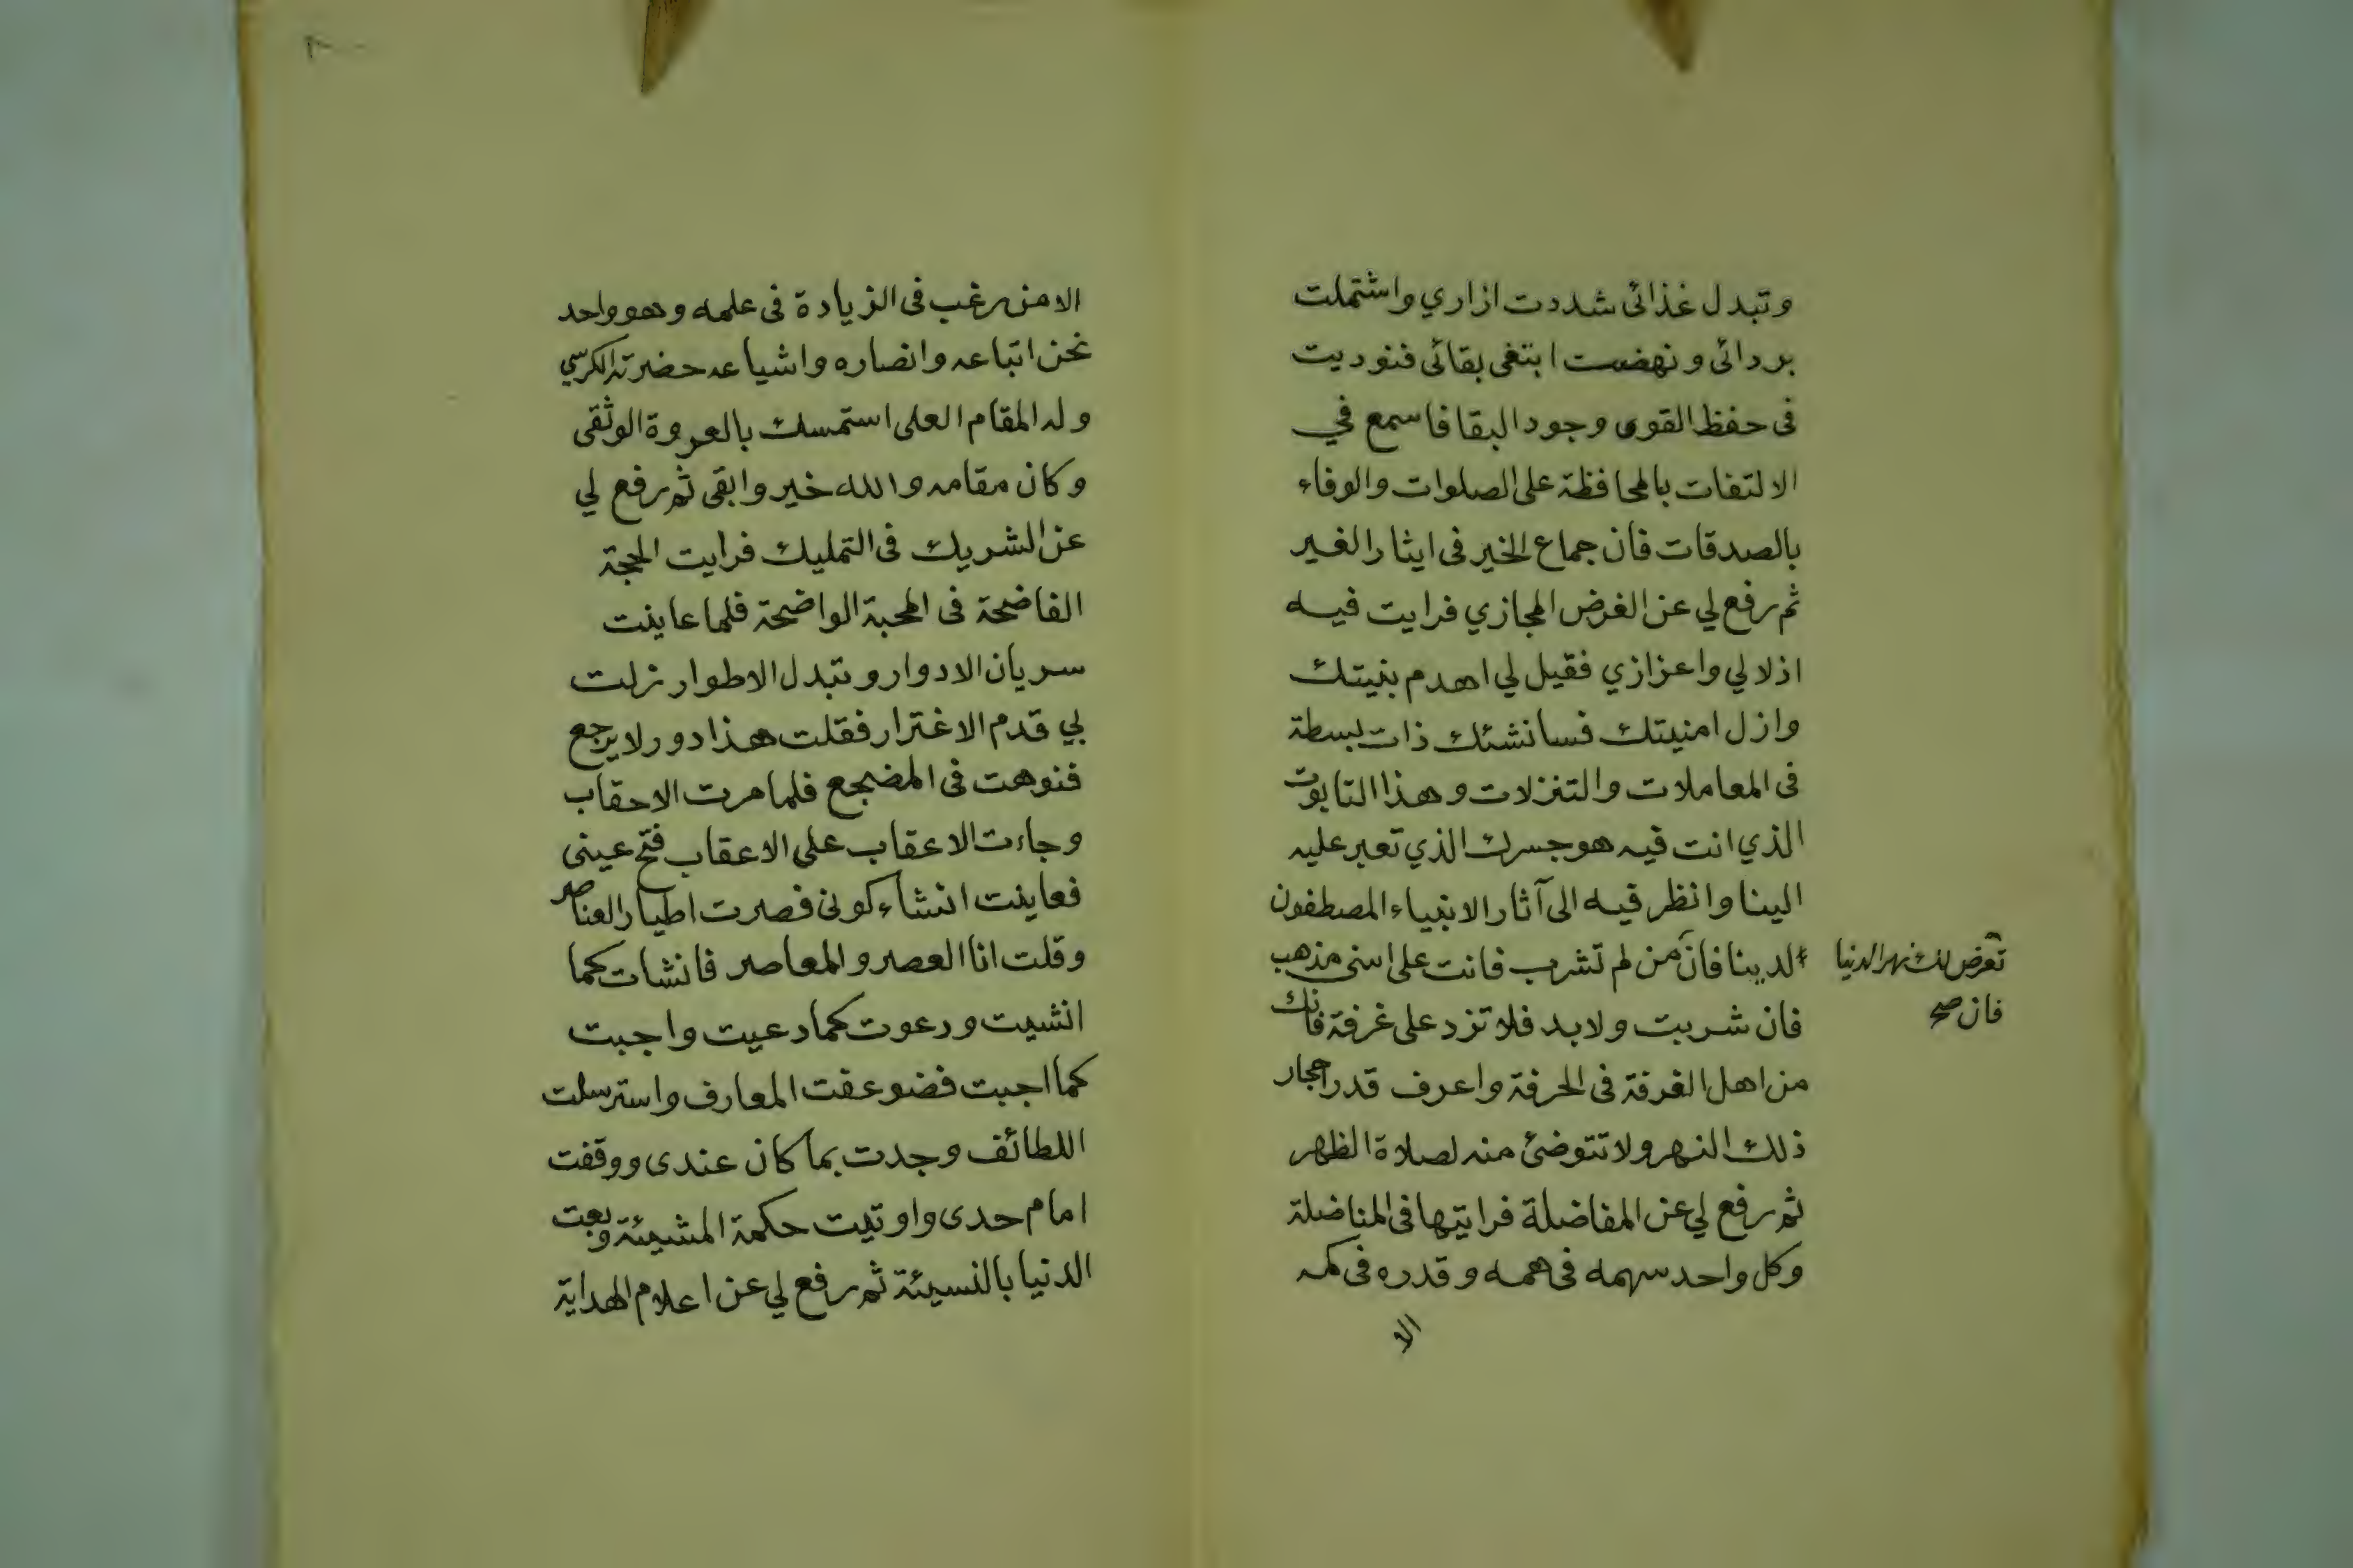 وتبدل غذائى شددت ازاري واشتملت
بردائى ونهضت ابتغى بقائى فنوديت
فى حفظ القوى وجود البقا فاسمع في
الالتفات بالمحافظة على الصلوات والوفاء
بالصدقات فان جماع الخير فى ايثار الغير
ثم رفع لي عن الغرض المجازي فرايت فيه
اذلالي واعزازي فقيل لي اهدم بنيتك
وازل امنيتك فسانشئك ذات بسطة
فى المعاملات والتنزلات وهذا التابوت
الذي انت فيه هو جسرك الذي تعبر عليه
الينا وانظر فيه الى آثار الانبياء المصطفون
لدينا فان من لم تشرب فانت على اسنى مذهب
تعرض لك نهر الدنيا
فان صح
فان شربت ولابد فلا تزد على غرفة فانك
من اهل الغرفة فى الحرفة واعرف قدر احجار
ذلك النهر ولا تتوضئ منه لصلاة الظهر
ثم رفع لي عن المفاضلة فرايتها فى المناضلة
وكل واحد سهمه فى همه وقدره فى كمه
الا
الا من رغب فى الزيادة فى علمه وهو واحد
نحن اتباعه وانصاره واشياعه حضرته الكرسي
وله المقام العلى استمسك بالعروة الوثقى
وكان مقامه والله خير وابقى ثم رفع لي
عن الشريك فى التمليك فرايت الحجة
الفاضحة فى المحبة الواضحة فلما عاينت
سريان الادوار وتبدل الاطوار زلت
بي قدم الاغترار فقلت هذا دور لا يرجع
فنوهت فى المضجع فلما مرت الاحقاب
وجاءت الاعقاب على الاعقاب فتح عينى
فعاينت انشاء كونى فصرت اطيار العناصر
وقلت انا العصر والمعاصر فانشات كما
انشيت ودعوت كما دعيت واجبت
كما اجبت فضوعفت المعارف واسترسلت
اللطائف وجدت بما كان عندى ووقفت
امام حدى واوتيت حكمة المشيئة وبعت
الدنيا بالنسيئة ثم رفع لي عن اعلام الهداية